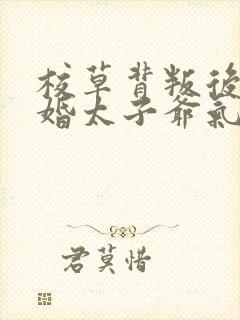 校草背叛後
婚太子爺氣
君莫惜